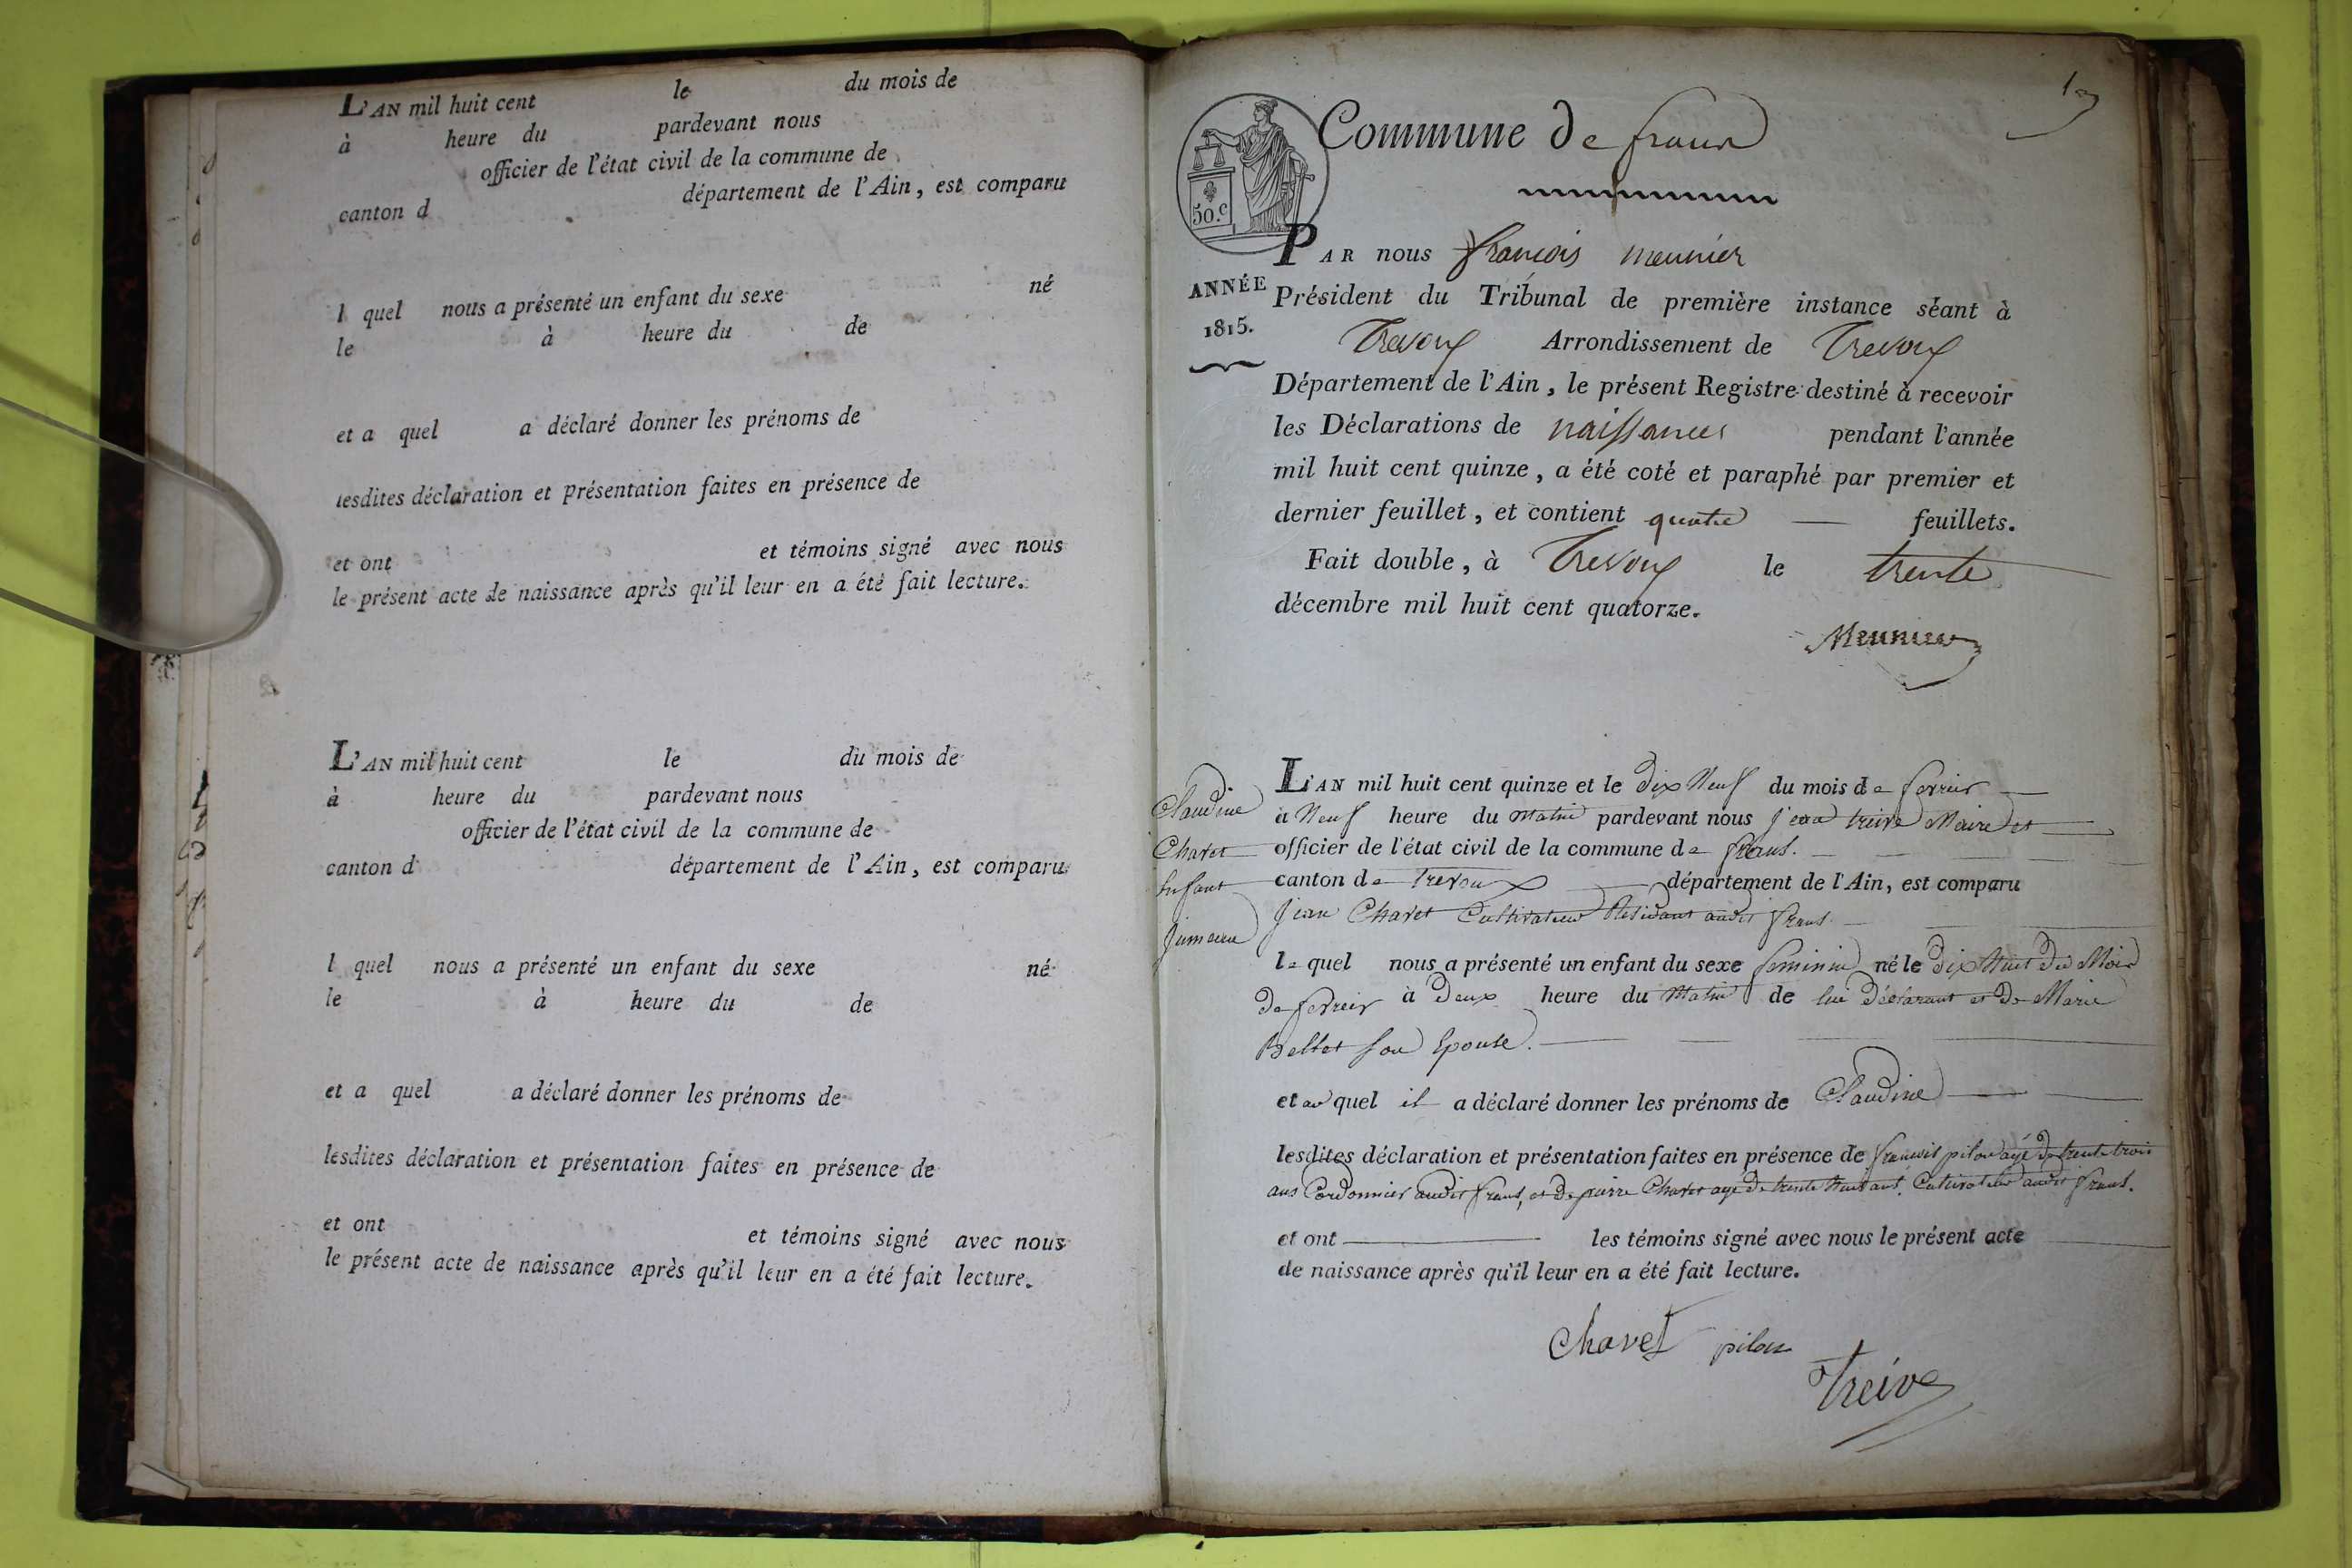 L'AN mil huit cent le du mois de
à heure du pardevant nous
officier de l'état civil de la commune de
canton d département de l'Ain, est comparu
l quel nous a présenté un enfant du sexe né
le à heure du de
et a quel a déclaré donner les prénoms de
lesdites déclaration et présentation faites en présence de
et ont et témoins signé avec nous
le présent acte de naissance après qu'il leur en a été fait lecture.
L'AN mil huit cent le du mois de
à heure du pardevant nous
officier de l'état civil de la commune de
canton d département de l'Ain, est comparu
l quel nous a présenté un enfant du sexe né
le à heure du de
et a quel a déclaré donner les prénoms de
lesdites déclaration et présentation faites en présence de
et ont et témoins signé avec nous
le présent acte de naissance après qu'il leur en a été fait lecture.
Commune de frans
50.c
PAR nous françois meunier
ANNÉE
1815.
Président du Tribunal de première instance séant à
Trevoux Arrondissement de Trevoux
Département de l'Ain, le présent Registre destiné à recevoir
les Déclarations de naissances pendant l'année
mil huit cent quinze, a été coté et paraphé par premier et
dernier feuillet, et contient quatre feuillets.
Fait double, à Trevoux le trente
décembre mil huit cent quatorze.
Meunier
Claudine
Chavet
Enfant
jumeau
L'AN mil huit cent quinze et le dix Neuf du mois de fevrier
à Neuf heure du matin pardevant nous jean treive Maire et
officier de l'état civil de la commune de frans.
canton de Trevoux département de l'Ain, est comparu
jean Chavet Cultivateur Residant audit frans
le quel nous a présenté un enfant du sexe feminin né le dix huit du Mois
de fevreir à deux heure du Matin de lui déclarant et de Marie
Bellet son Epouse.
et au quel il a déclaré donner les prénoms de Claudine
lesdites déclaration et présentation faites en présence de francois pilon agé de trente trois
ans Cordonnier audit frans, et de pierre Chavet agé de trente huit ans. Cultivateur audit frans.
et ont les témoins signé avec nous le présent acte
de naissance après qu'il leur en a été fait lecture.
Chavet pilon
Treive